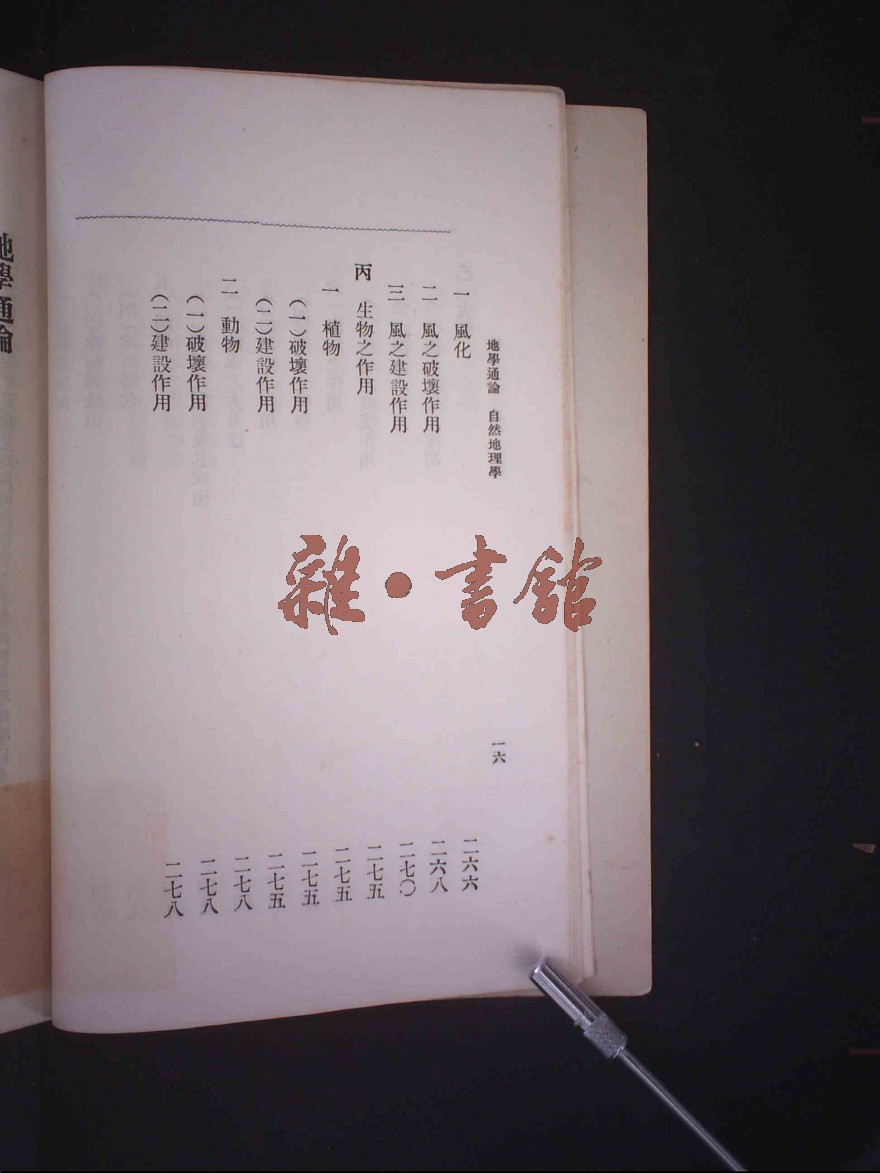 地學通論 自然地理學 一六
一 風化 二六六
二 風之破壞作用 二六八
三 風之建設作用 二七〇
丙 生物之作用 二七五
一 植物 二七五
(一)破壞作用 二七五
(二)建設作用 二七五
二 動物 二七八
(一)破壞作用 二七八
(二)建設作用 二七八
地學通論
雜·書館